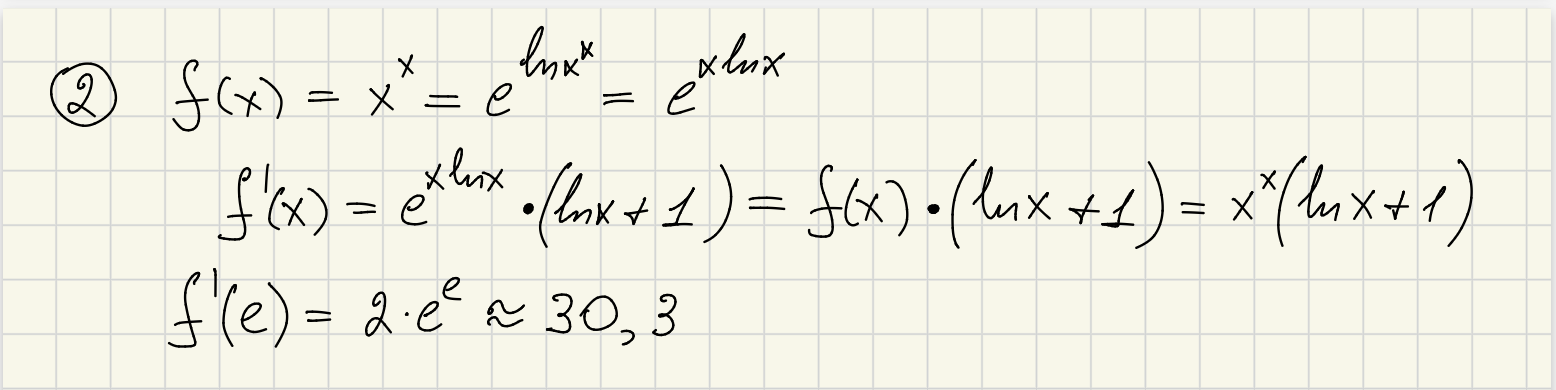 ② f(x) = x^x = e^{ln x^x} = e^{x ln x}
f'(x) = e^{x ln x} · (ln x + 1) = f(x) · (ln x + 1) = x^x (ln x + 1)
f'(e) = 2 · e^e ≈ 30,3